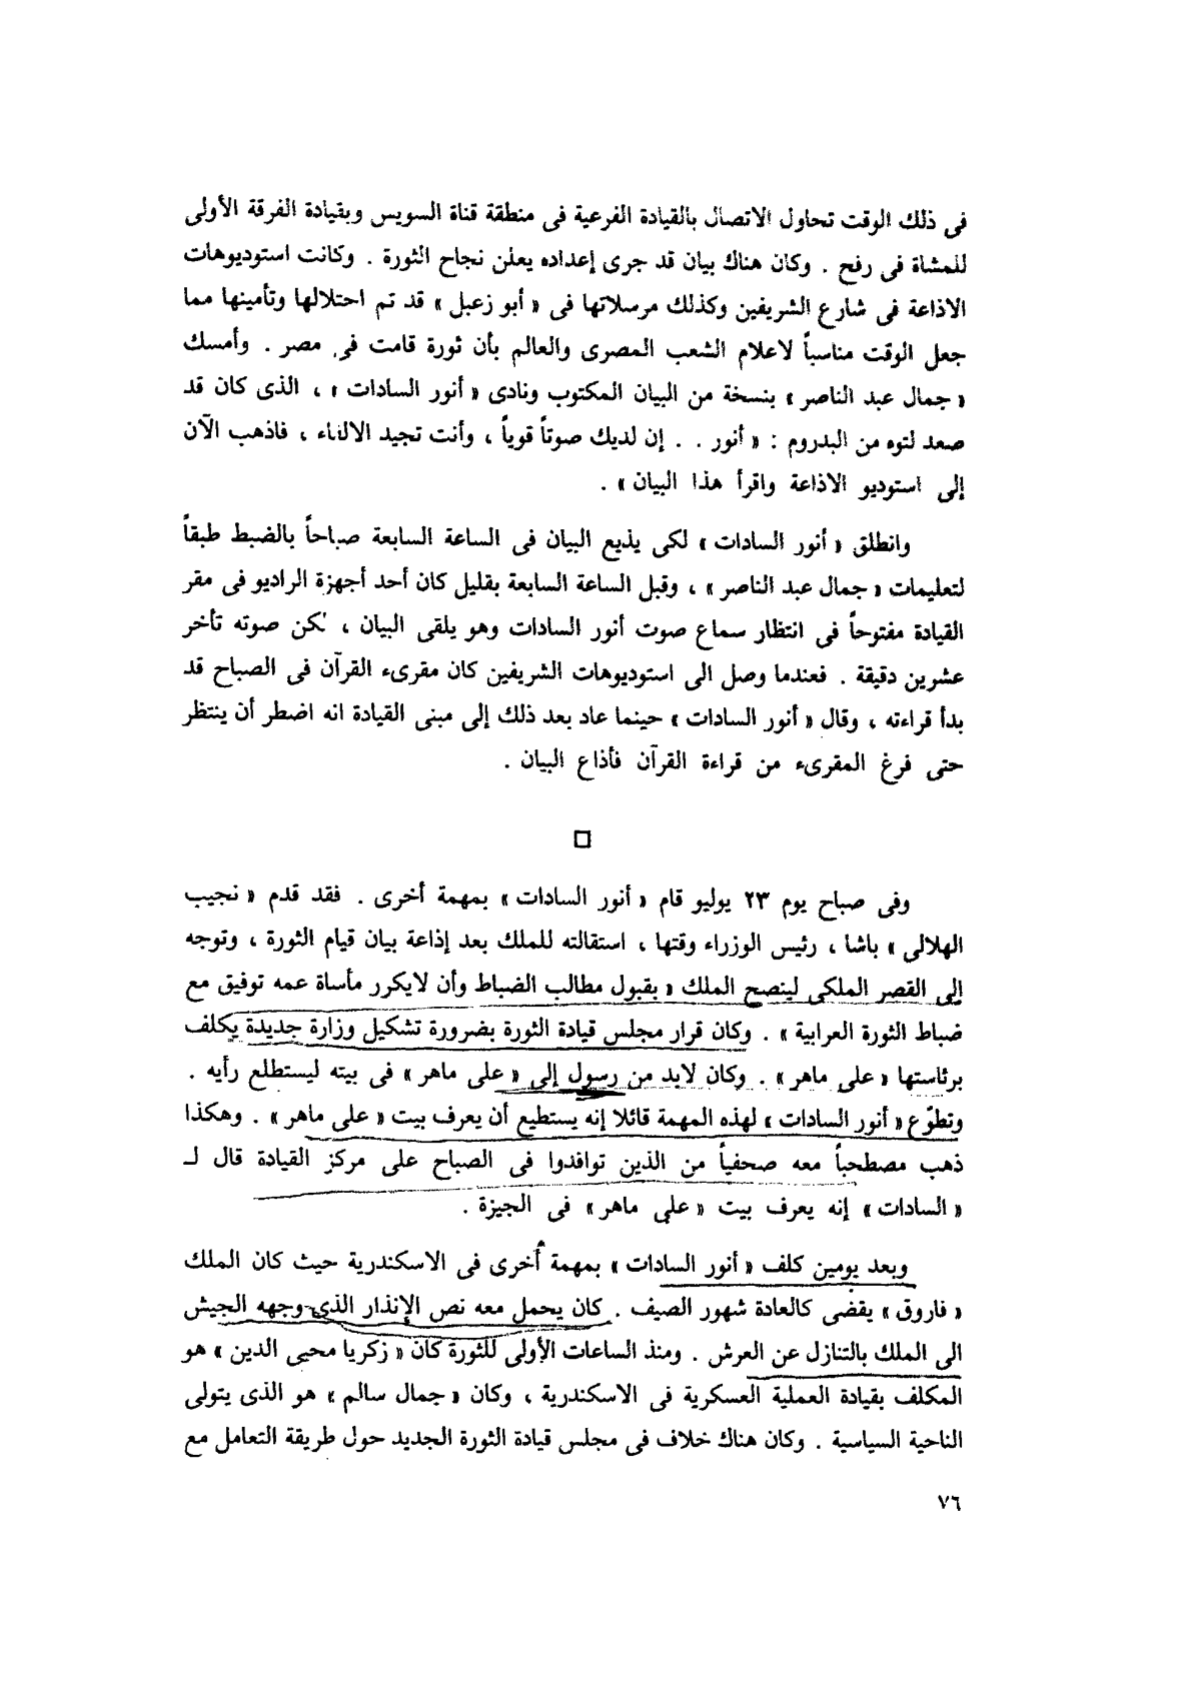 فى ذلك الوقت تحاول الاتصال بالقيادة الفرعية فى منطقة قناة السويس وبقيادة الفرقة الأولى
للمشاة فى رفح . وكان هناك بيان قد جرى إعداده يعلن نجاح الثورة . وكانت استوديوهات
الاذاعة فى شارع الشريفين وكذلك مرسلاتها فى « أبو زعبل » قد تم احتلالها وتأمينها مما
جعل الوقت مناسباً لاعلام الشعب المصرى والعالم بأن ثورة قامت فى مصر . وأمسك
« جمال عبد الناصر » بنسخة من البيان المكتوب ونادى « أنور السادات » ، الذى كان قد
صعد لتوه من البدروم : « أنور . . إن لديك صوتاً قوياً ، وأنت تجيد الالقاء ، فاذهب الآن
إلى استوديو الاذاعة واقرأ هذا البيان » .
وانطلق « أنور السادات » لكى يذيع البيان فى الساعة السابعة صباحاً بالضبط طبقاً
لتعليمات « جمال عبد الناصر » ، وقبل الساعة السابعة بقليل كان أحد أجهزة الراديو فى مقر
القيادة مفتوحاً فى انتظار سماع صوت أنور السادات وهو يلقى البيان ، لكن صوته تأخر
عشرين دقيقة . فعندما وصل الى استوديوهات الشريفين كان مقرىء القرآن فى الصباح قد
بدأ قراءته ، وقال « أنور السادات » حينما عاد بعد ذلك إلى مبنى القيادة انه اضطر أن ينتظر
حتى فرغ المقرىء من قراءة القرآن فأذاع البيان .
وفى صباح يوم ٢٣ يوليو قام « أنور السادات » بمهمة أخرى . فقد قدم « نجيب
الهلالى » باشا ، رئيس الوزراء وقتها ، استقالته للملك بعد إذاعة بيان قيام الثورة ، وتوجه
إلى القصر الملكى لينصح الملك « بقبول مطالب الضباط وأن لايكرر مأساة عمه توفيق مع
ضباط الثورة العرابية » . وكان قرار مجلس قيادة الثورة بضرورة تشكيل وزارة جديدة يكلف
برئاستها « على ماهر » . وكان لابد من رسول إلى « على ماهر » فى بيته ليستطلع رأيه .
وتطوّع « أنور السادات » لهذه المهمة قائلا إنه يستطيع أن يعرف بيت « على ماهر » . وهكذا
ذهب مصطحباً معه صحفياً من الذين توافدوا فى الصباح على مركز القيادة قال لـ
« السادات » إنه يعرف بيت « على ماهر » فى الجيزة .
وبعد يومين كلف « أنور السادات » بمهمة أخرى فى الاسكندرية حيث كان الملك
« فاروق » يقضى كالعادة شهور الصيف . كان يحمل معه نص الإنذار الذى وجهه الجيش
الى الملك بالتنازل عن العرش . ومنذ الساعات الأولى للثورة كان « زكريا محيى الدين » هو
المكلف بقيادة العملية العسكرية فى الاسكندرية ، وكان « جمال سالم » هو الذى يتولى
الناحية السياسية . وكان هناك خلاف فى مجلس قيادة الثورة الجديد حول طريقة التعامل مع
٧٦